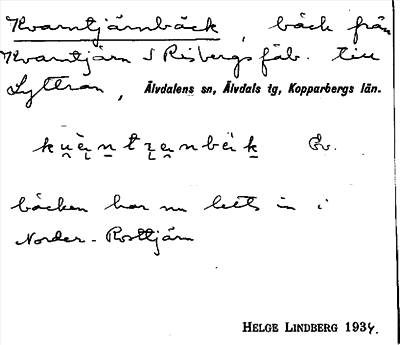 Kvarntjärnbäck, bäck från
Kvarntjärn S Risbergs fäb. till
Lyttran, Älvdalens sn, Älvdals tg, Kopparbergs län.
bäcken har nu letts in i
Norder-Rosttjärn
HELGE LINDBERG 1934.